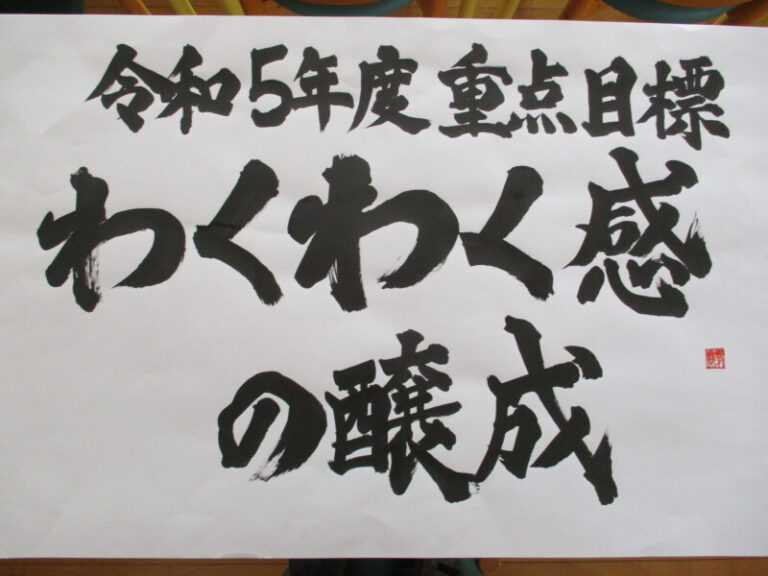 令和5年度 重点目標
わくわく感
の醸成